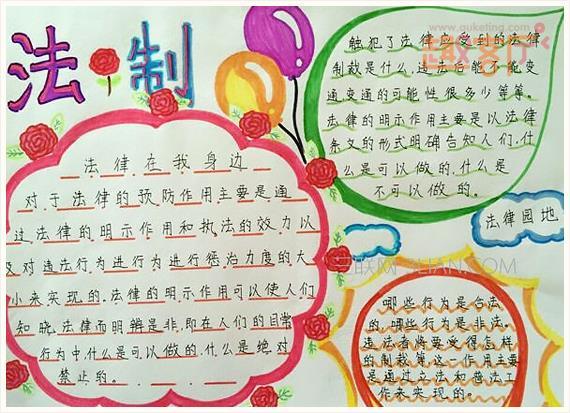 法制
法律在我身边
对于法律的预防作用主要是通
过法律的明示作用和执法的效力以
及对违法行为进行为进行惩治力度的大
小来实现的.法律的明示作用可以使人们
知晓.法律而明辨是非,即在人们的日常
行为中.什么是可以做的.什么是绝对
禁止的。
www.guketing.com
触犯了法律应受到的法律
制裁是什么.违法后能不能变
通.变通的可能性很多少等等。
法律的明示作用主要是以法律
条文的形式明确告知人们.什
么是可以做的.什么是
不可以做的。
法律园地
哪些行为是合法
的.哪些行为是非法.
违法者将要受得怎样
的制裁等这一作用主要
是通过立法和普法工
作来实现的。